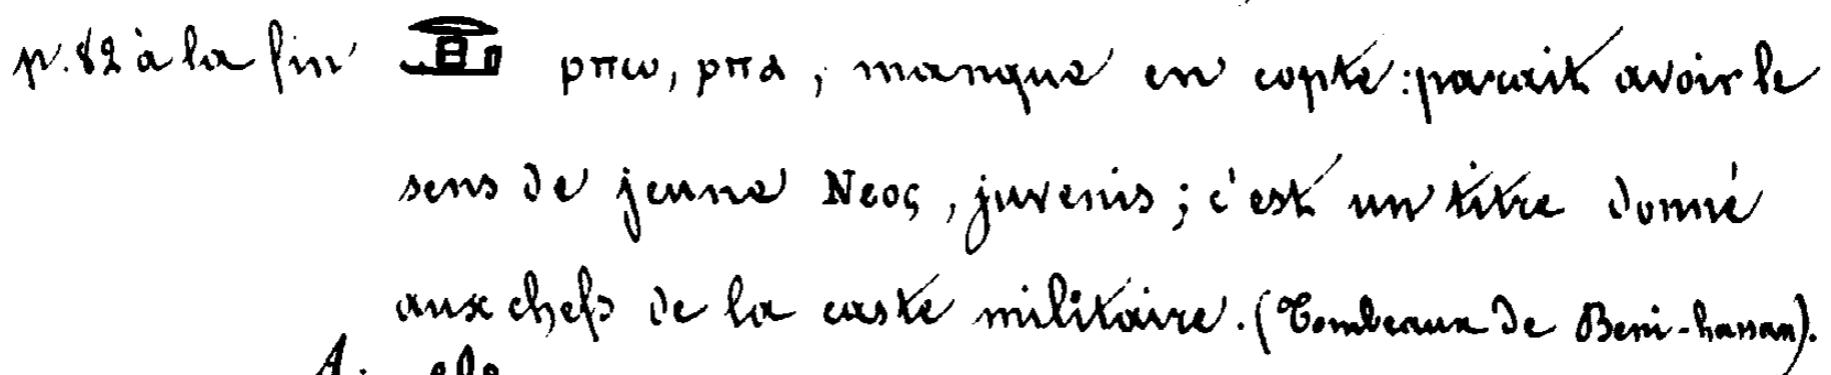 p. 82 à la fin 𓂋𓊪𓂝 ⲣⲡⲱ, ⲣⲡⲁ, manque en copte : parait avoir le
sens de jeune Νεος, juvenis ; c'est un titre donné
aux chefs de la caste militaire. (Tombeaux de Beni-hassan).